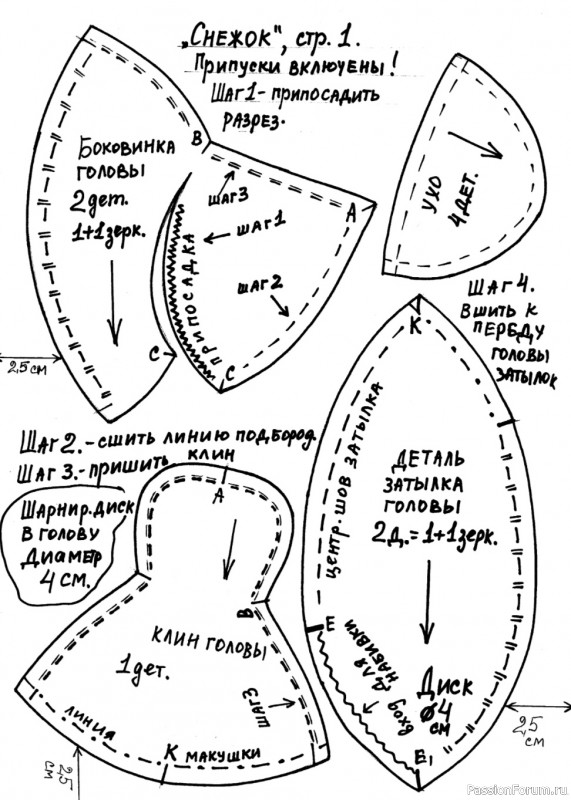 „Снежок", стр. 1.
Припуски включены!
Шаг 1 - припосадить
разрез.
Боковинка
головы
2 дет.
1+1 зерк.
В
шаг 3
А
шаг 1
припосадка
шаг 2
С
С
2.5 см
ухо
4 дет.
Шаг 4.
Вшить к
переду
головы
затылок
Шаг 2. - сшить линию подбород.
Шаг 3. - пришить клин
Шарнир. диск
в голову
Диаметр
4 см.
А
В
Клин головы
1 дет.
шаг 3
линия
К макушки
2.5
см
К
центр. шов затылка
Деталь
затылка
головы
2 д. = 1+1 зерк.
Е
вход для
набивки
Диск
ø 4
см
Е1
2,5
см
PassionForum.ru